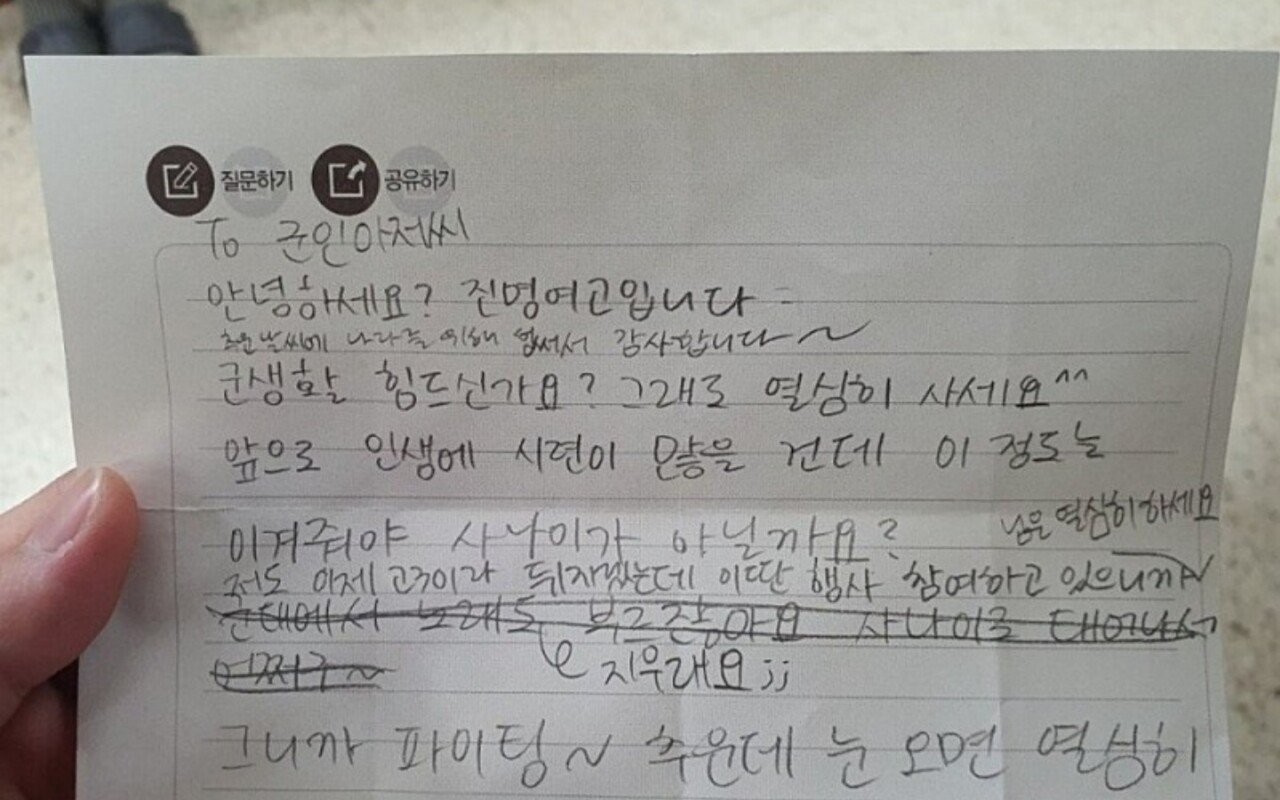 질문하기 공유하기
To 군인아저씨
안녕하세요? 진명여고입니다
추운 날씨에 나라를 위해 힘써서 감사합니다~
군생활 힘드신가요? 그래도 열심히 사세요^^
앞으로 인생에 시련이 많을 건데 이 정도는
이겨줘야 사나이가 아닐까요?
님은 열심히하세요
저도 이제 고3이라 뒤지겠는데 이딴 행사 참여하고 있으니까
군대에서 노래도 부르잖아요 사나이로 태어나서
어쩌구~
지우래요;;
그니까 파이팅~ 추운데 눈 오면 열심히